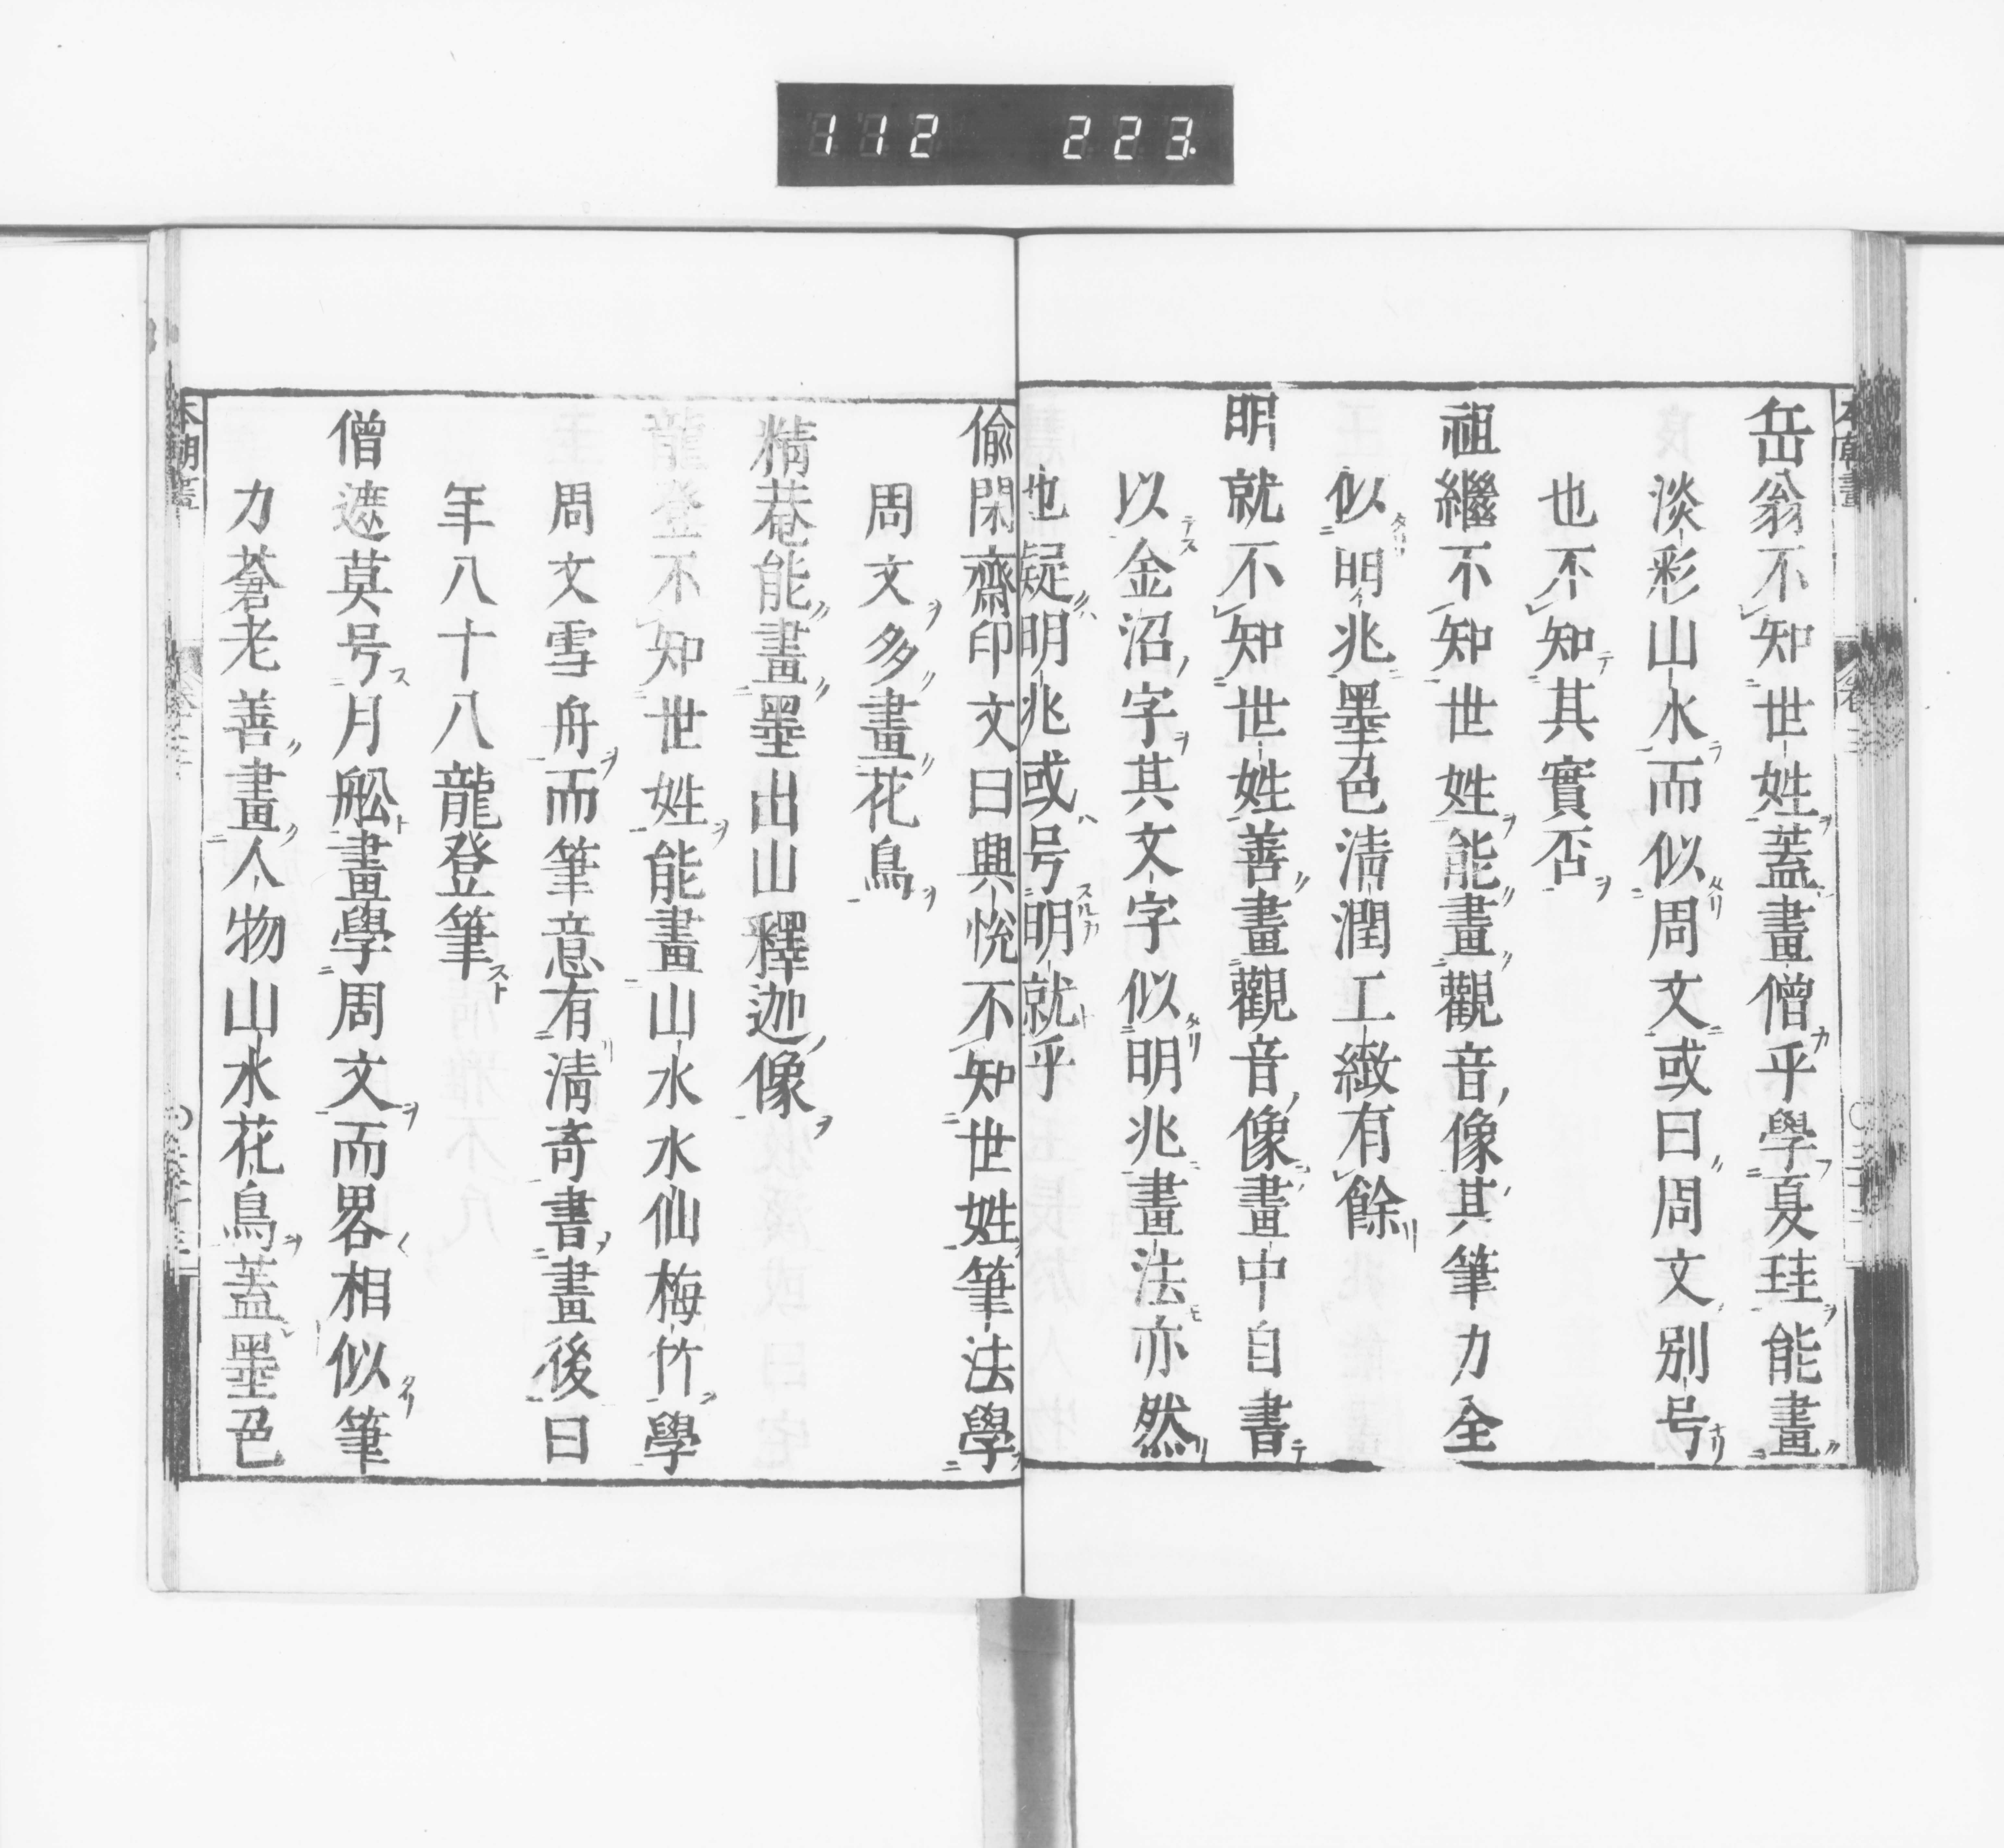 112 223.
岳翁不知世姓蓋畫僧乎學夏珪能畫
淡彩山水而似周文或曰周文別号
也不知其實否
祖繼不知世姓能畫觀音像其筆力全
似明兆墨色清潤工緻有餘
明就不知世姓善畫觀音像畫中自書
以金沼字其文字似明兆畫法亦然
也疑明兆或号明就乎
偷閑齋印文曰興悅不知世姓筆法學
周文多畫花鳥
精巷能畫墨出山釋迦像
龍登不知世姓能畫山水水仙梅竹學
周文雪舟而筆意有清奇書畫後曰
年八十八龍登筆
僧遮莫号月舩畫學周文而畧相似筆
力蒼老善畫人物山水花鳥蓋墨色
本朝畫